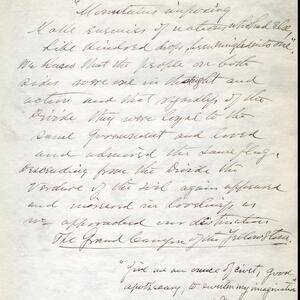 "Mountains imposing
Make enemies of nations who had else,
Like kindred drops, been mingled into one".
We knew that the people on both
sides were one in thought and
action and that regardless of the
Divide they were loyal to the
same government and loved
and admired the same flag.
Descending from the Divide the
verdure of the soil again appeared
and increased in loveliness as
we approached our destination
The Grand Canyon of the Yellowstone.
"Give me an ounce of civet, good
apothecary to sweeten my imagination